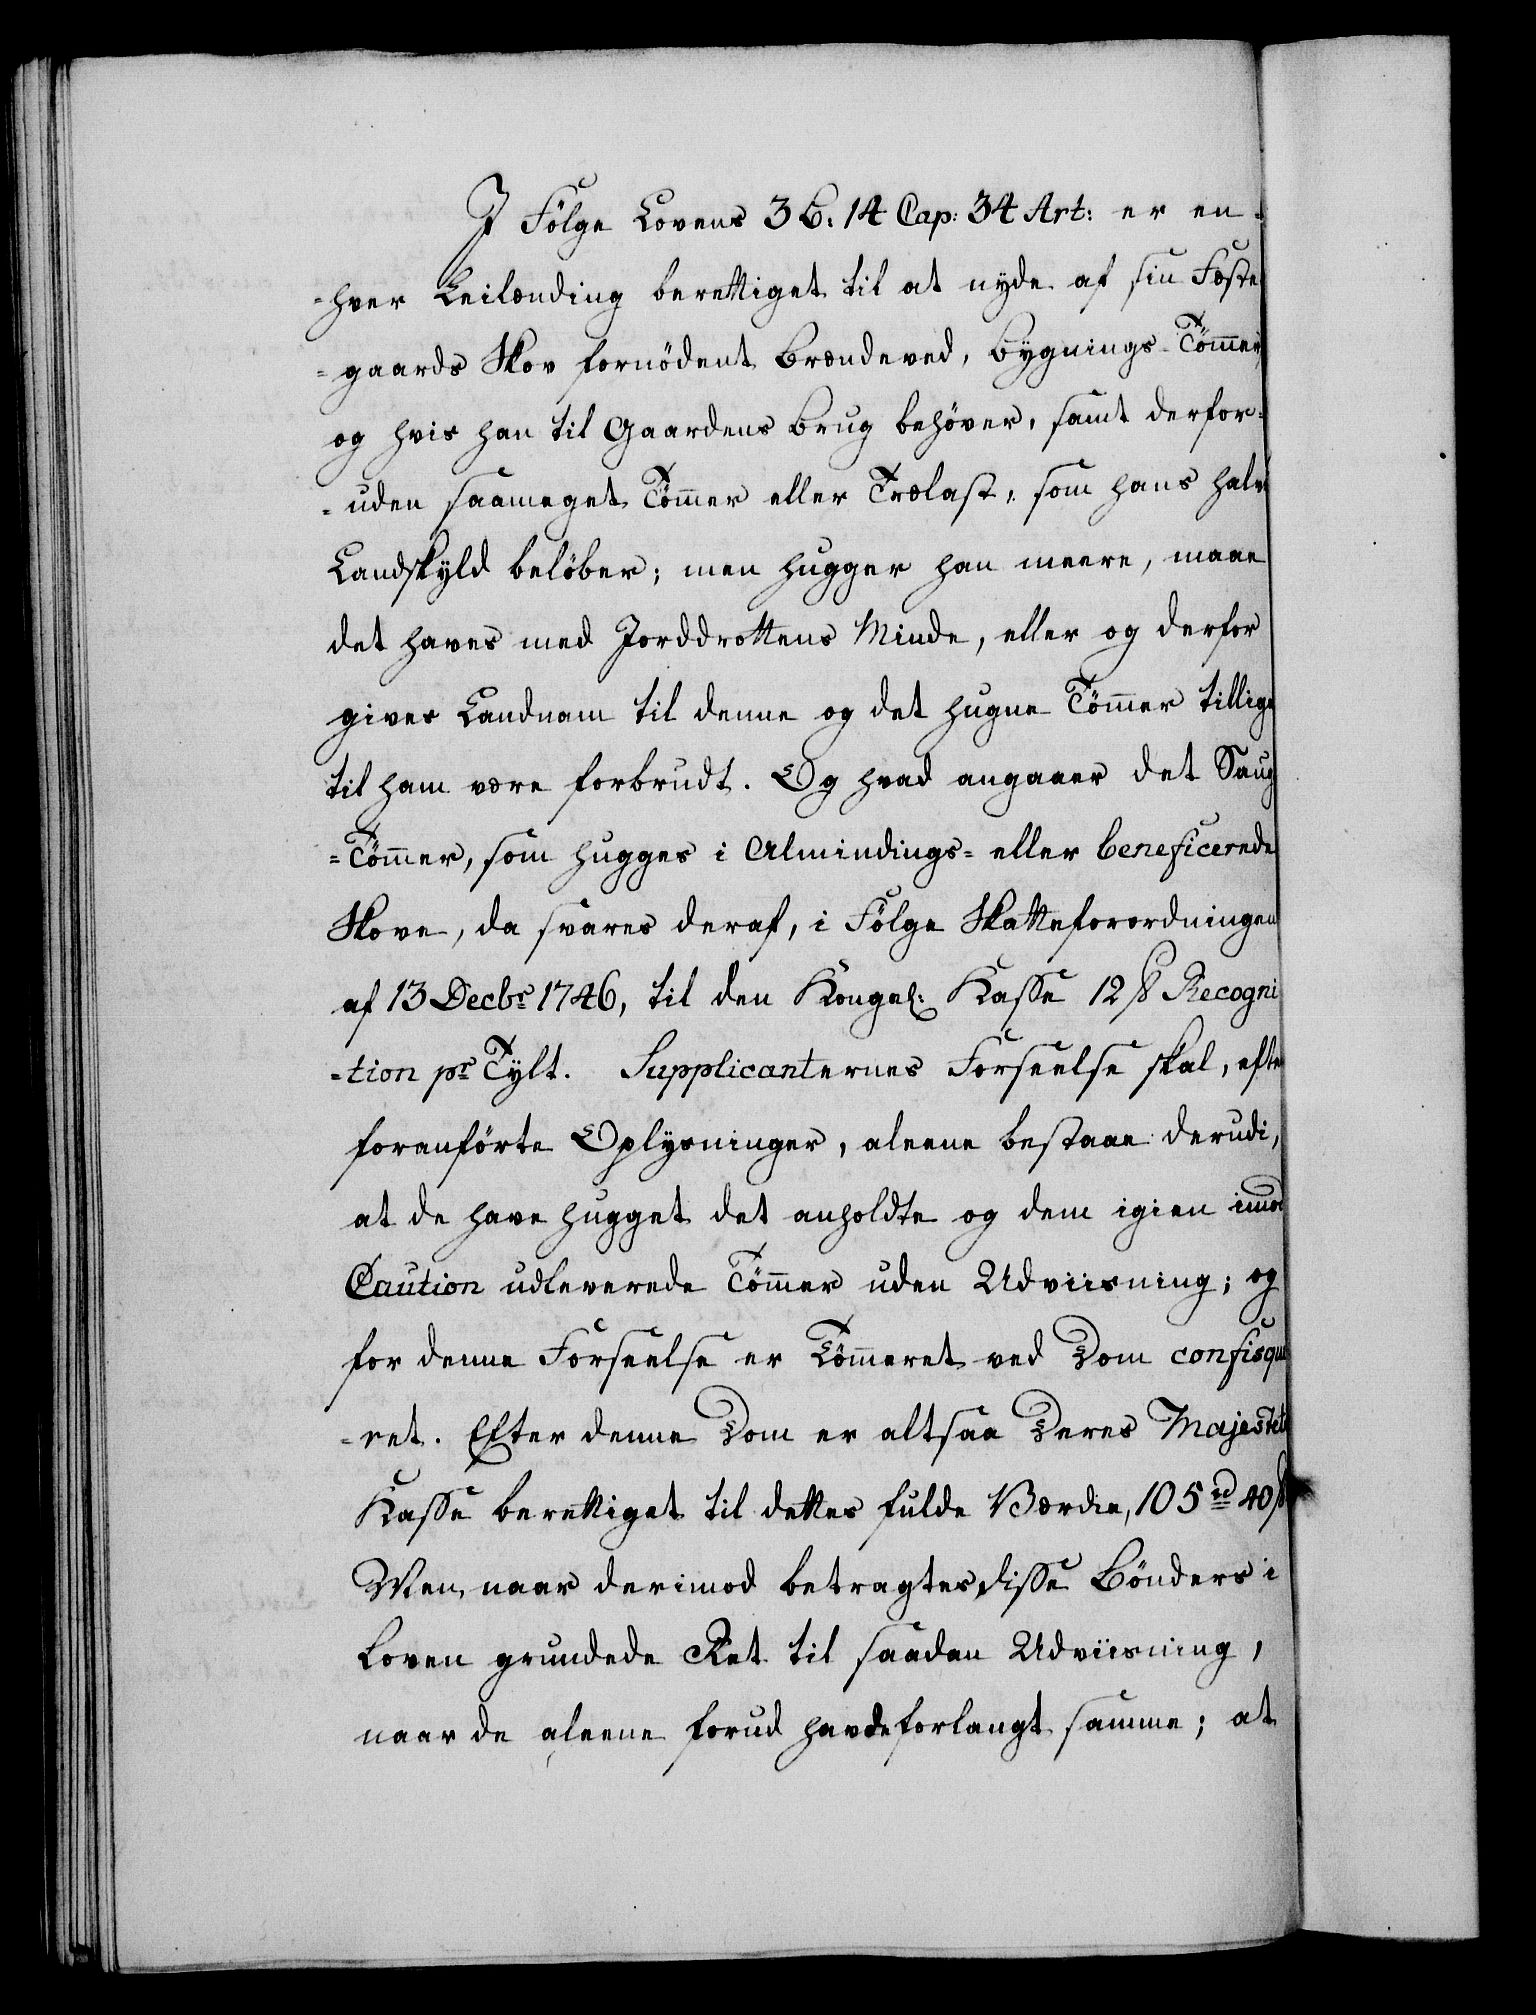 I Fölge Lovens 3 B: 14 Cap: 34 Art: er en-
-hver Leilænding berettiget til at nyde af sin Fæste
-gaards Skov fornödent Brændeved, Bygnings-Tömmer,
og hvis han til Gaardens Brug behöver, samt derfor-
-uden saameget Tömmer eller Trælast, som hans halve
Landskyld belöber; men hugger han meere, maae
det haves med Jorddrottens Minde, eller og derfor
gives Landnam til denne og det hugne Tömmer tillige
til ham være forbrudt. Og hvad angaaer det Saug
-Tömmer, som hugges i Almindings- eller beneficerede
Skove, da svares deraf, i Fölge Skatteforordningen
af 13 Decbr 1746, til den Kongel: Kasse 12 ß Recogni
-tion pr Tylt. Supplicanternes Forseelse skal, efter
foranförte Oplysninger, aleene bestaae derudi,
at de have hugget det anholdte og dem igien imod
Caution udleverede Tömmer uden Udviisning; og
for denne Forseelse er Tömmeret ved Dom confisque
-ret. Efter denne Dom er altsaa Deres Majestets
Kasse berettiget til dettes fulde Værdie, 105 rd 40 ß
Men, naar derimod betragtes disse Bönders i
Loven grundede Ret til saadan Udviisning,
naar de aleene forud havde forlangt samme; at